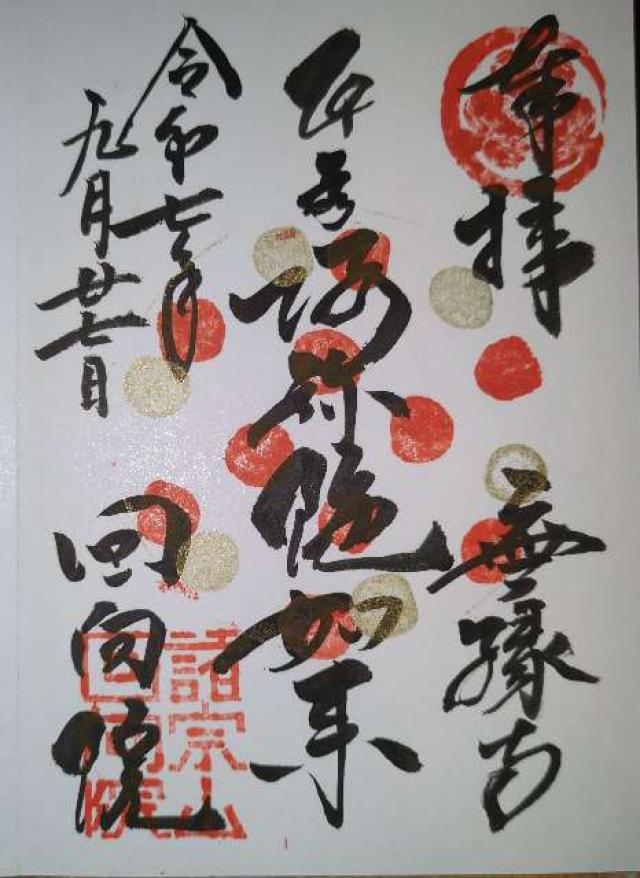 奉拝 無縁寺
阿弥陀如来
令和七年
九月廿七日
回向院
諸宗山
回向院